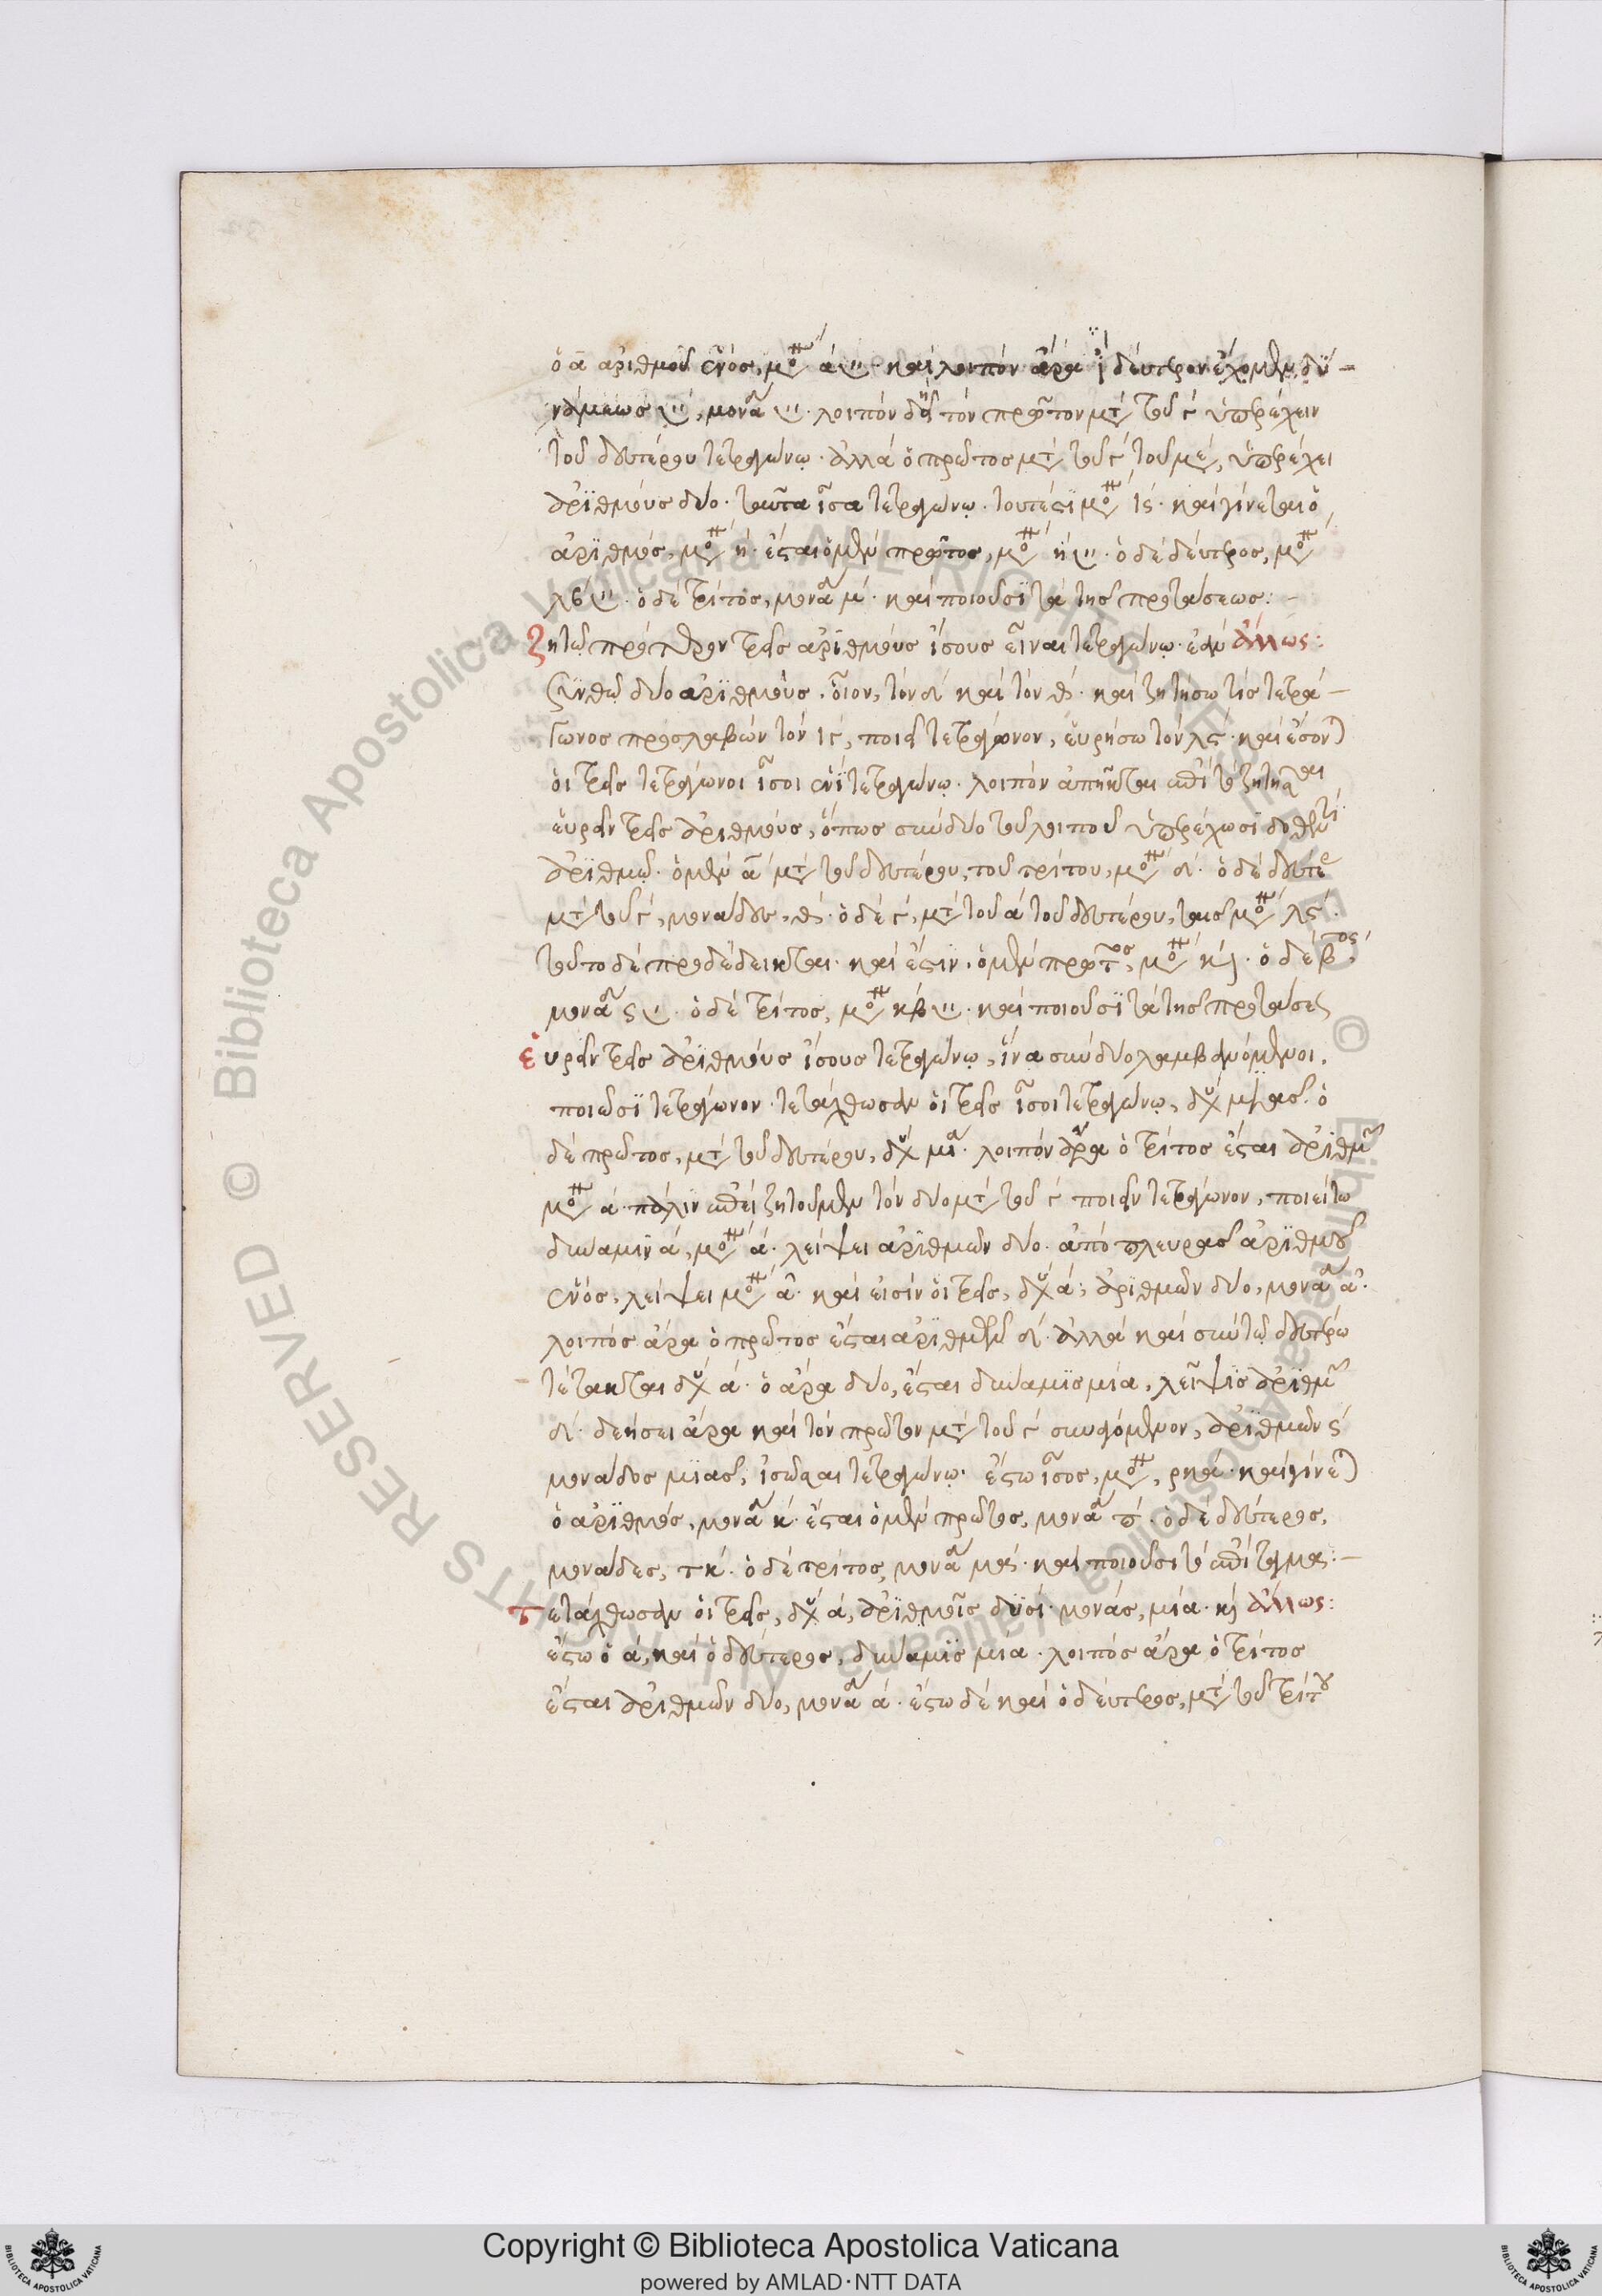 ὁ ᾱ ἀριθμοῦ ἑνός, μο ά 𐅵. καὶ λοιπόν ἄρα ἰ δεύτερον ἔχομεν δυ-
νάμεως 𐅵, μονα 𐅵. λοιπόν δεῖ τόν πρῶτον μτ τοῦ γ ὑπερέχειν
τοῦ δευτέρου τετραγώνω. ἀλλά ὁ πρῶτος μτ τοῦ γ τοῦ μέ, ὑπερέχει
ἀριθμούς δύο. ταῦτα ἴσα τετραγώνω. τουτέστι μο ις. καὶ γίνεται ὁ
ἀριθμός, μο ή. ἔσται ὁ μέν πρῶτος, μο ή 𐅵. ὁ δέ δεύτερος, μο
λβ 𐅵. ὁ δέ τρίτος, μονα μ. καὶ ποιοῦσι τά τῆς προτάσεως:-
ζητῶ πρότερον τρεῖς ἀριθμούς ἴσους εἶναι τετραγώνω. ἐάν ἄλλως:
συνθῶ δύο ἀριθμούς. οἷον, τόν δ καὶ τόν θ. καὶ ζητήσω τίς τετρά-
γωνος προσλαβών τόν ιγ, ποιεῖ τετράγωνον, εὑρήσω τόν λς. καὶ ἔσον
οἱ τρεῖς τετράγωνοι ἴσοι ἑνί τετραγώνω. λοιπόν ἀπῆκται ἐπί τό ζητῆσαι
εὑρεῖν τρεῖς ἀριθμούς, ὅπως σύν δύο τοῦ λοιποῦ ὑπερέχωσι δοθέντι
ἀριθμῶ. ὁ μέν ᾱ μτ τοῦ δευτέρου, τοῦ τρίτου, μο δ. ὁ δέ δευτε
μτ τοῦ γ, μονάδας, θ. ὁ δέ γ, μτ τοῦ ά τοῦ δευτέρου, ταῖς μο λς.
τοῦτο δέ προδέδεικται. καὶ ἔστιν. ὁ μέν πρῶτος, μο κ. ὁ δέ βος,
μονα ς 𐅵. ὁ δέ τρίτος, μο κβ 𐅵. καὶ ποιοῦσι τά τῆς προτάσεως
εὑρεῖν τρεῖς ἀριθμούς ἴσους τετραγώνω, ἵνα σύν δύο λαμβανόμενοι,
ποιῶσι τετράγωνον. τετάχθωσαν οἱ τρεῖς ἴσοι τετραγώνω, δυ μιᾶς. ὁ
δέ πρῶτος, μτ τοῦ δευτέρου, δυ μι. λοιπόν ἄρα ὁ τρίτος ἔσται ἀριθμ
μο ά. πάλιν ἐπεί ζητοῦμεν τόν δύο μτ τοῦ γ ποιεῖν τετράγωνον, ποιείτω
δύναμιν ά, μο ά. λείψει ἀριθμῶν δύο. ἀπό πλευρᾶς ἀριθμοῦ
ἑνός, λείψει μο ά. καὶ εἰσίν οἱ τρεῖς, δυ ά, ἀριθμῶν δύο, μονα ά.
λοιπός ἄρα ὁ πρῶτος ἔσται ἀριθμῶν δ. ἀλλά καὶ σύν τῶ δευτέρω
τέτακται δυ ά. ὁ ἄρα δύο, ἔσται δύναμις μία, λεῖψις ἀριθμ
δ. δεήσει ἄρα καὶ τόν πρῶτον μτ τοῦ γ συναγόμενον, ἀριθμῶν ς
μονάδος μιᾶς, ἰσῶσαι τετραγώνω. ἔστω ἴσος, μο, ρκα. καὶ γίνε
ὁ ἀριθμός, μονα κ. ἔσται ὁ μέν πρῶτος, μονα π. ὁ δέ δεύτερος,
μονάδες, τκ. ὁ δέ τρίτος, μονα μα. καὶ ποιοῦσι τό ἐπίταγμα:-
τετάχθωσαν οἱ τρεῖς, δυ ά, ἀριθμοῖς δυσί. μονάς, μία. κ ἄλλως:
ἔστω ὁ ά, καὶ ὁ δεύτερος, δύναμις μία. λοιπός ἄρα ὁ τρίτος
ἔσται ἀριθμῶν δύο, μονα ά. ἔστω δέ καὶ ὁ δεύτερος, μτ τοῦ τρίτου
Copyright © Biblioteca Apostolica Vaticana
powered by AMLAD·NTT DATA